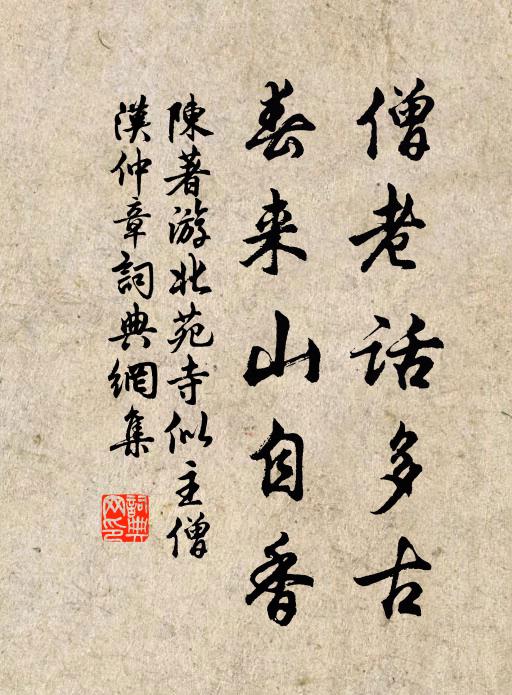 僧老话多古
春来山自香
陳著游北苑寺似主僧
漢仲章詞典網集
詞典网印